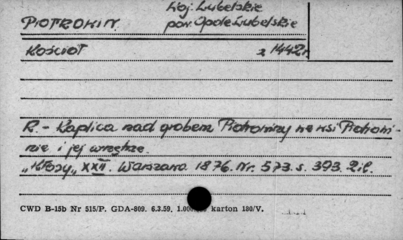 Woj. Lubelskie
PIOTROWIN. pow. Opole Lubelskie
Kościół z 1442r
R. - Kaplica nad grobem Piotrowiny na wsi Piotrowi-
nie i jej wnętrze.
"Kłosy" XXII. Warszawa. 1876. Nr. 573. s. 393. 2 il.
CWD B-15b Nr 515/P. GDA-809. 6.3.59. karton 180/V.